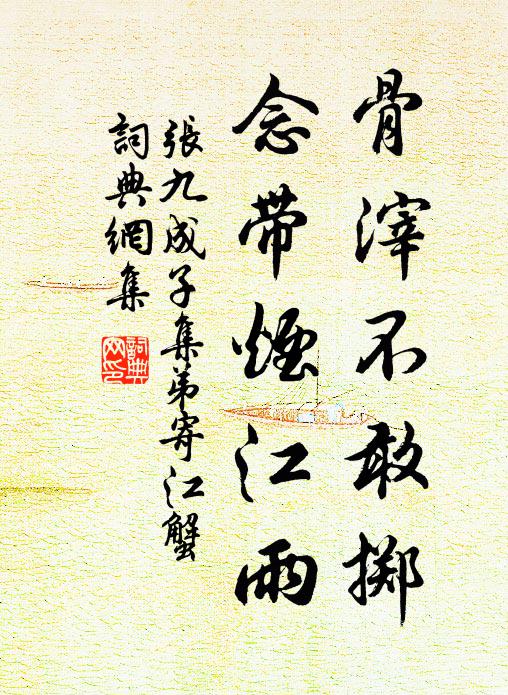 骨滓不敢擲
念帶煙江雨
張九成子集弟寄江蟹
詞典網集
詞典网印